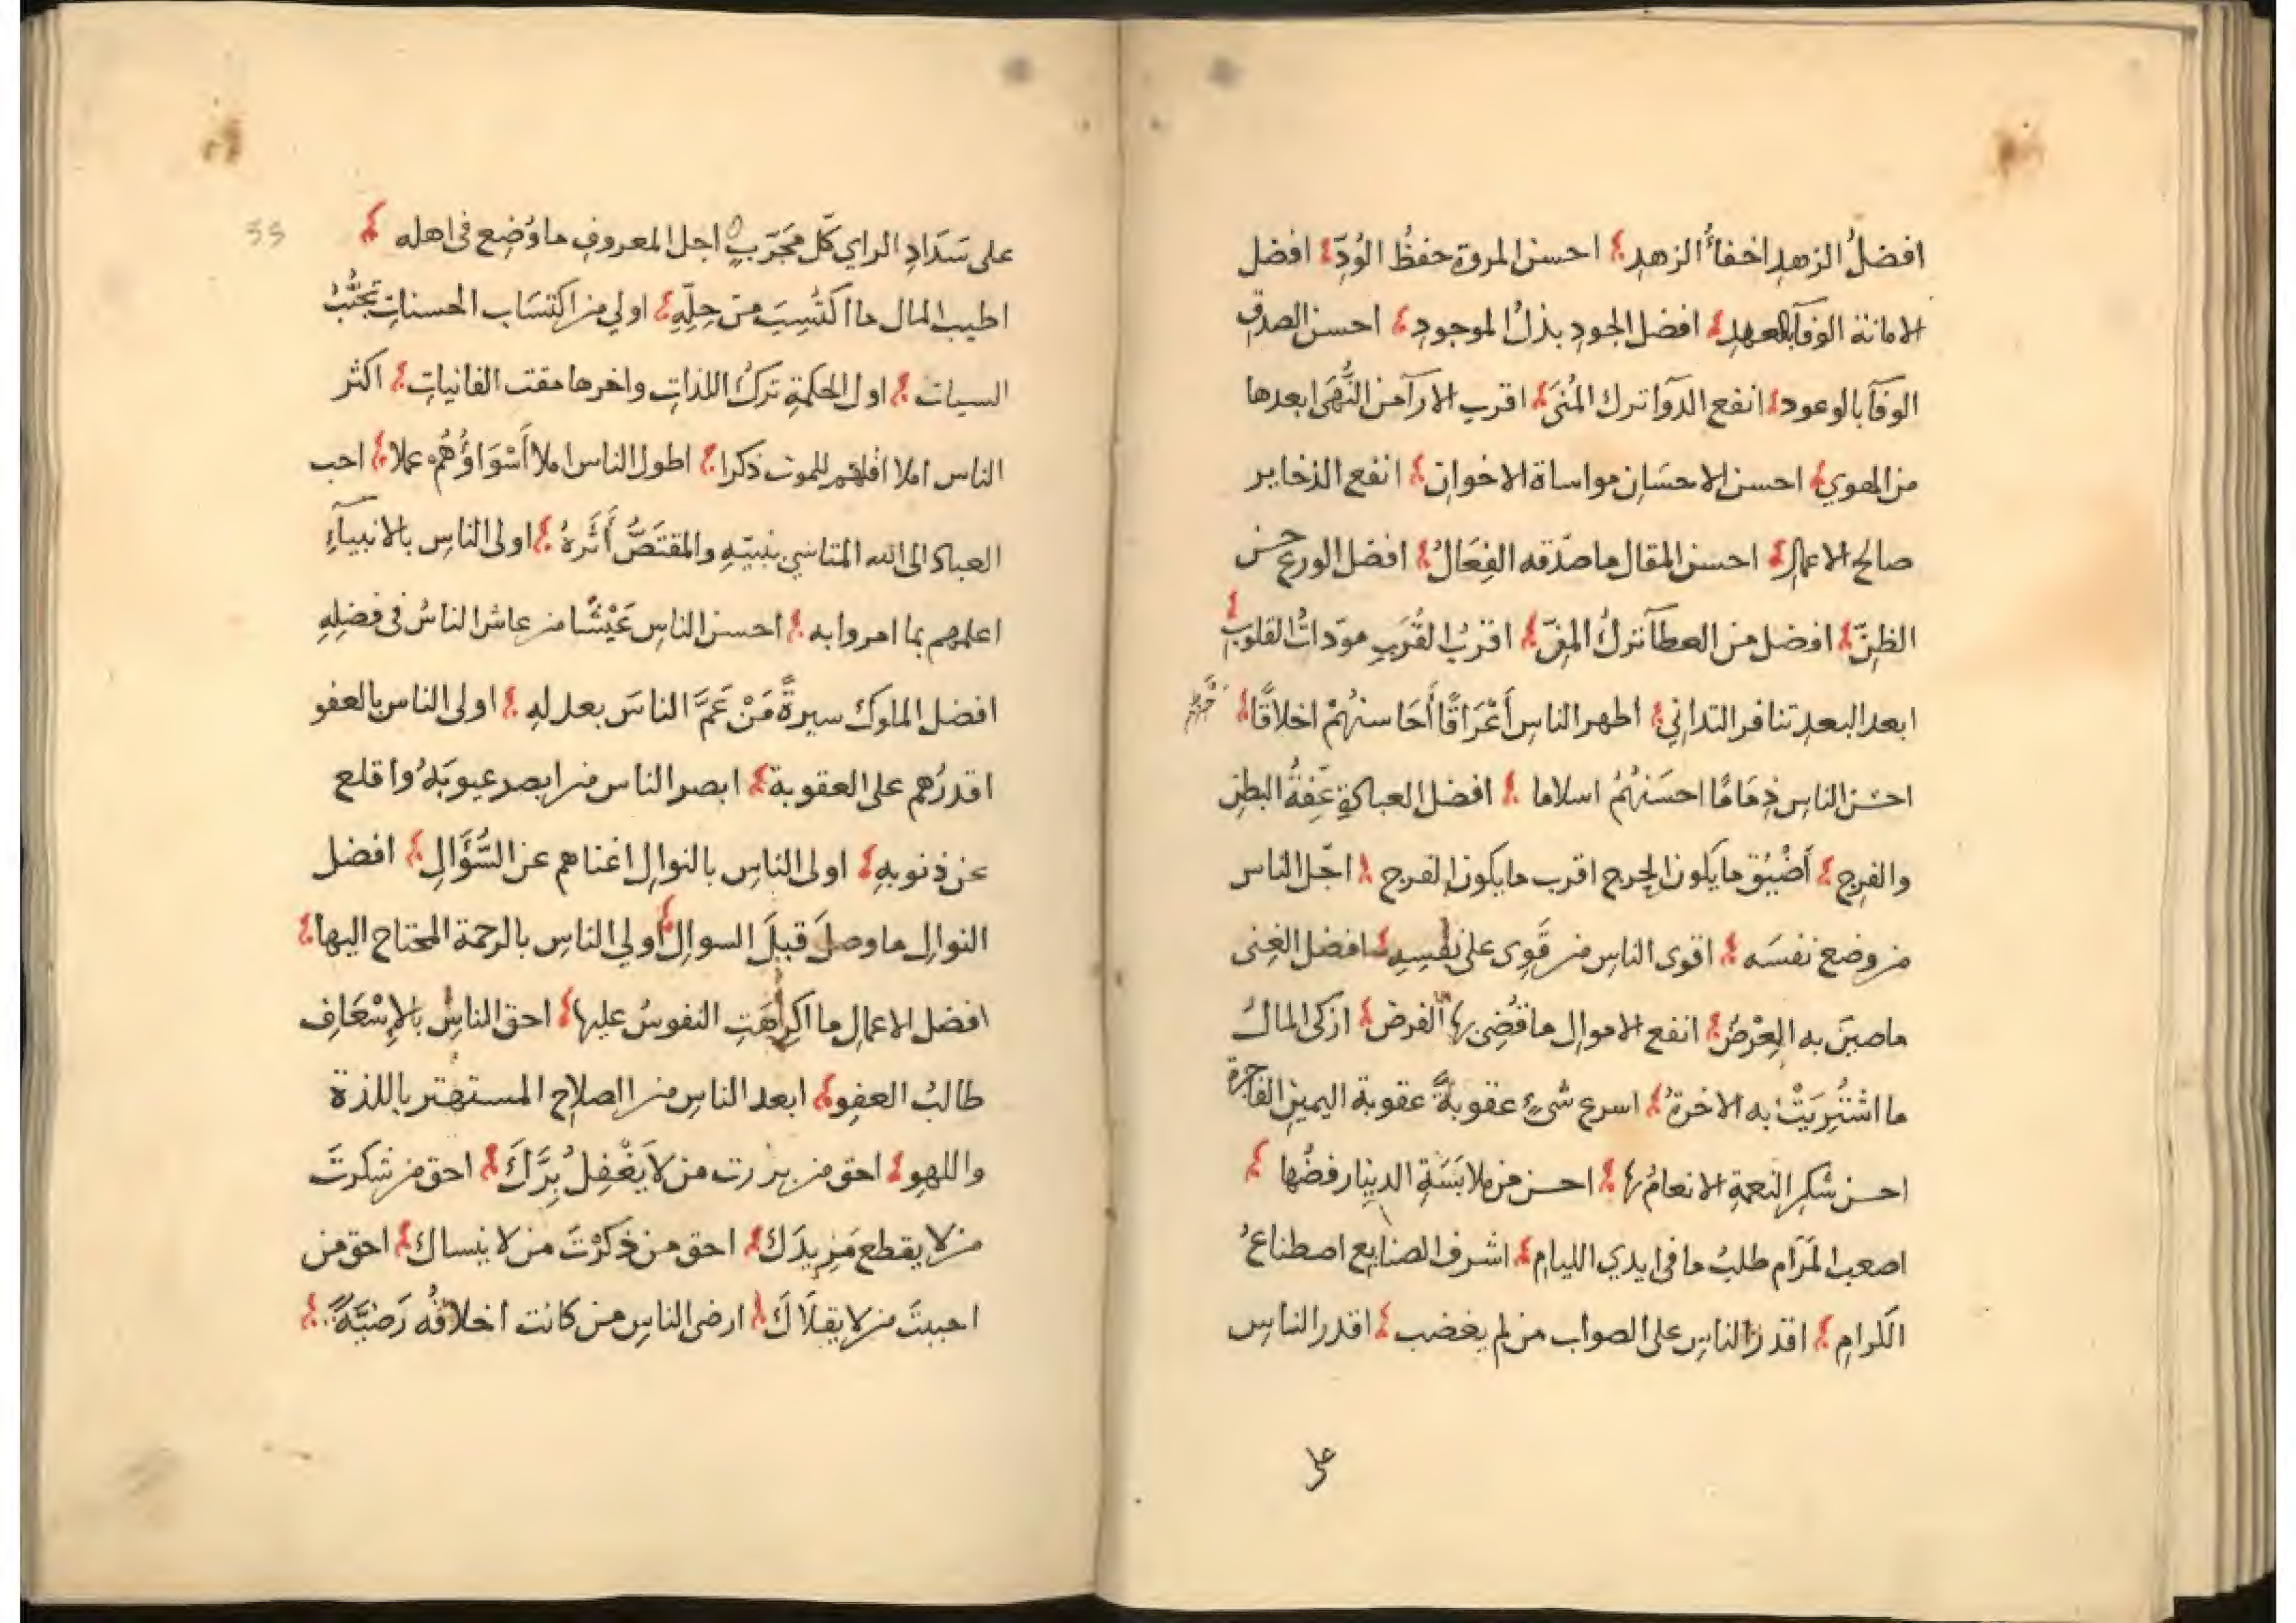 افضلُ الزهدِ اخفاءُ الزهدِ احسن المروة حفظُ الوُدِّ افضل
الامانة الوفآ بالعهدِ افضل الجودِ بذلُ الموجودِ احسن الصدق
الوفآ بالوعود انفع الدوآ ترك المُنَى اقرب الارآ من النُّهَى ابعدها
من الهوي احسن الاحسَانِ مواساة الاخوانِ انفع الذخاير
صالح الاعمال احسن المقال ما صدّقه الفِعَالُ افضل الورع حسن
الظنِّ افضل من العطآ تركُ المنِّ اقربُ القُرَبِ مودّاتُ القلوبِ
ابعد البعدِ تنافر التداني اطهر الناسِ أَعْرَاقًا أَحَاسنهُمْ اخلاقًا
احسن الناسِ ذِمَامًا احسَنهُمُ اسلاما افضل العبادةِ عِفّةُ البطنِ
والفرجِ أَضْيَقُ ما يكون الحرج اقرب ما يكون الفرج اجّل الناس
من وضع نفسَه اقوى الناسِ من قَوِى على نفسِهِ افضل الغِنى
ما صينَ به العِرْضُ انفع الاموال ما قُضِى بها الفرض ازكى المالُ
ما اشتُرِيَتْ به الاخرةُ اسرع شىءٍ عقوبةً عقوبة اليمين الفاجرة
احسن شكرِ النعمةِ الانعامُ بها احسن من ملابَسَةِ الدينارِ رفضُها
اصعب المرَام طلبُ ما فى ايدي الليامِ اشرف الصنايع اصطناعُ
الكرامِ اقدر الناسِ على الصواب من لم يغضب اقدر الناسِ
على
على سَدَادِ الراي كلّ مجَرّبٍ اجل المعروفِ ما وُضِع فى اهله
اطيب المال ما اكتُسِبَ من حِلِّهِ اولي من اكتسَاب الحسناتِ تجنُّبُ
السيات اول الحكمةِ تركُ اللذاتِ واخرها مقت الفانياتِ اكثر
الناس املا اقلهم للموت ذكرا اطول الناس املا أَسْوَاؤُهُم عملا احب
العباد الى الله المتاسي بنبيّهِ والمقتَصُّ أَثَرهُ اولى الناسِ بالانبيآءِ
اعلمهم بما امروا به احسن الناسِ عَيْشًا من عاش الناسُ فى فضلِهِ
افضل الملوك سيرةً مَنْ عَمَّ الناسَ بعدلهِ اولى الناس بالعفو
اقدرُهم على العقوبة ابصر الناس من ابصر عيوبَهُ واقلع
عن ذنوبهِ اولى الناسِ بالنوالِ اغناهم عن السُّؤَالِ افضل
النوالِ ما وصلَ قبلَ السوالِ اولي الناسِ بالرحمة المحتاج اليها
افضل الاعمال ما اكرهَتِ النفوسُ عليها احق الناسِ بالإِسْعَافِ
طالبُ العفو ابعد الناسِ من الصلاحِ المستهتر باللذة
واللهوِ احق من بررت من لا يَغْفِلُ بِرَّكَ احق من شكرتَ
من لا يقطع مَزِيدَكَ احق من ذكرْتَ من لا ينساك احق من
احببتَ من لا يقلَاكَ ارضى الناس من كانت اخلاقُه رَضيَّةً
55